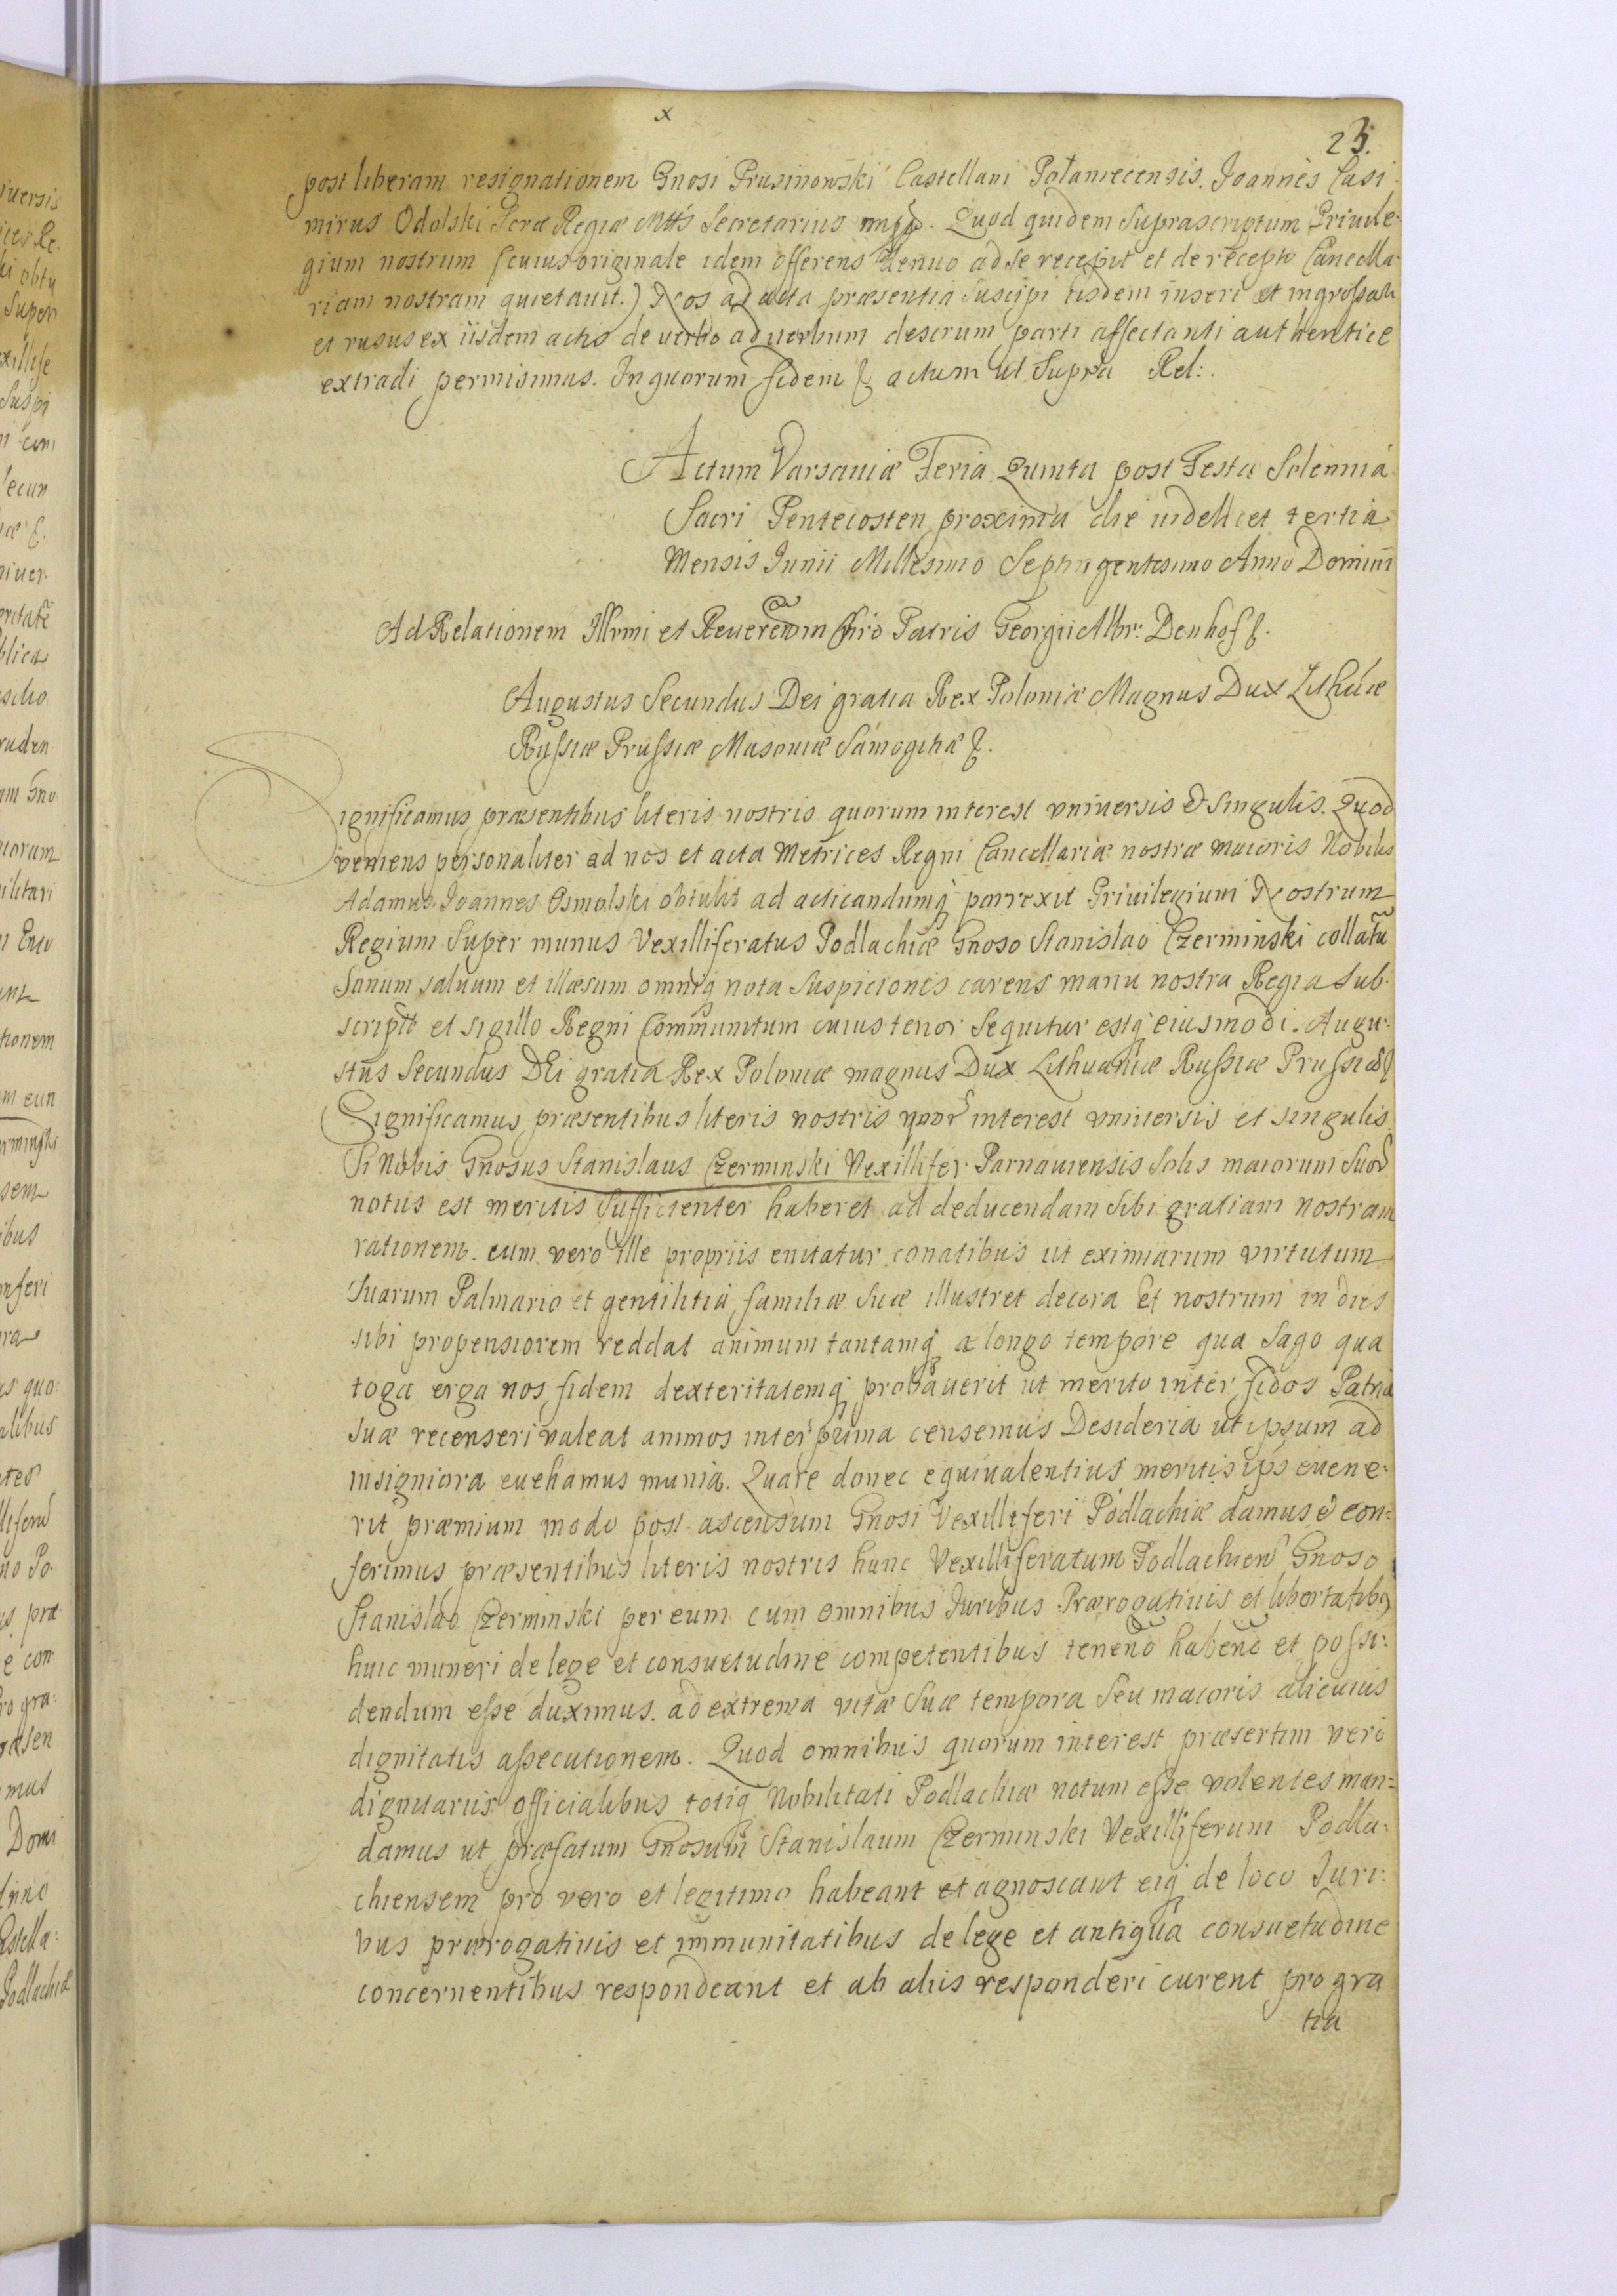 x
23.
post liberam resignationem Gnosi Prusinowski Castellani Połaniecensis. Joannes Casi
mirus Odolski Scræ Regiæ Mttis Secretarius mpp. Quod quidem Suprascriptum Privile-
gium nostrum (cuius originale idem offerens denuo ad se recepit et de recepto Cancella
riam nostram quietauit.) Nos ad acta præsentia suscipi iisdem inseri et ingrossari
et rusus ex iisdem actis de verbo ad verbum descrum parti affectanti authentice
extradi permisimus. In quorum fidem & actum ut Supra Rel:.
Actum Varsaviæ Feria Quinta post Festa Solennia
Sacri Pentecosten proxima die videlicet tertia
Mensis Junii Millesimo Septingentesimo Anno Domini
Ad Relationem Illrmi et Reverendm Chrō Patris Georgii Albr: Denhof &.
Augustus Secundus Dei gratia Rex Poloniæ Magnus Dux Lithúæ
Russiæ Prussiæ Masoviæ Samogitiæ &.
Significamus præsentibus literis nostris quorum interest vniversis et singulis. Quod
veniens personaliter ad nos et acta Metrices Regni Cancellariæ nostræ maioris Nobilis
Adamus Joannes Osmolski obtulit ad acticandumq porrexit Privilegium Nostrum
Regium Super munus Vexilliferatus Podlachiæ Gnoso Stanislao Czerminski collatũ
Sanum salvum et illæsum omniq nota Suspicionis carens manu nostra Regia Sub-
scriptt et Sigillo Regni Communitum cuius tenor Sequitur estq eiusmodi. Augu-
stus Secundus DEi gratia Rex Poloniæ magnus Dux Lithuaniæ Russiæ Prussiæ &
Significamus præsentibus literis nostris quor interest vniversis et singulis
Si Nobis Gnosus Stanislaus Czerminski Vexillifer Parnaviensis Solis maiorum Suor
notus est meritis Sufficienter haberet ad deducendam sibi gratiam nostram
rationem. cum vero ille propriis enitatur conatibus ut eximiarum virtutum
Suarum Palmario et gentilitia familiæ Suæ illustret decora et nostrum in dies
sibi propensiorem reddat animum tantamq a longo tempore qua Sago qua
toga erga nos fidem dexteritatemq probaverit ut merito inter fidos Patriæ
Suæ recenseri valeat animos inter prima censemus Desideria ut ipsum ad
insigniora evehamus munia. Quare donec equivalentius meritis ips evene-
rit præmium modo post ascensum Gnosi Vexilliferi Podlachiæ damus & con=
ferimus præsentibus literis nostris hunc Vexilliferatum Podlachien Gnoso
Stanislao Czerminski per eum cum omnibus Juribus Prærogativis et libertatibq
huic muneri de lege et consuetudine competentibus tenend habend et possi-
dendum esse duximus. ad extrema vitæ Suæ tempora Seu maioris alicuius
dignitatis assecutionem. Quod omnibus quorum interest præsertim vero
dignitariis officialibus totiq Nobilitati Podlachiæ notum esse volentes man=
damus ut præfatum Gnosum Stanislaum Czerminski Vexilliferum Podla-
chiensem pro vero et legitimo habeant et agnoscant eiq de loco Juri-
bus prærogativis et immunitatibus de lege et antiqua consuetudine
concernentibus respondeant et ab aliis responderi curent pro gra
tia